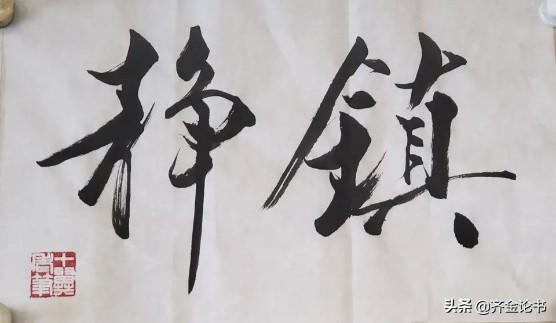 鎮静
头条 @齐金论书